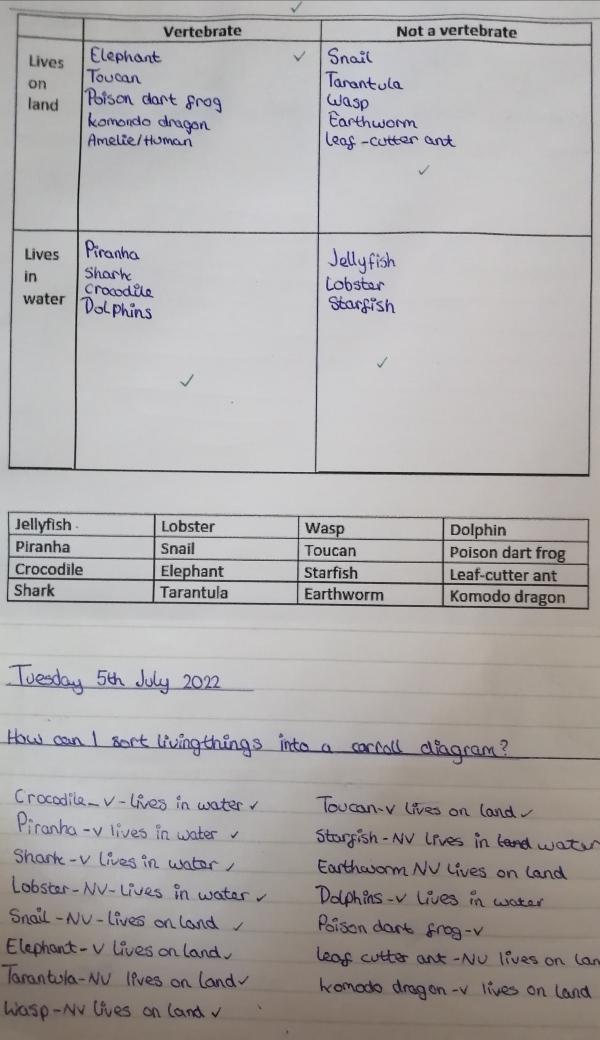 Vertebrate Not a vertebrate
Lives
on
land
Elephant
Toucan
Poison dart frog
komondo dragon
Amelie/Human
Snail
Tarantula
Wasp
Earthworm
leaf-cutter ant
Lives
in
water
Piranha
Shark
Crocodile
Dolphins
Jellyfish
Lobster
Starfish
Jellyfish Lobster Wasp Dolphin
Piranha Snail Toucan Poison dart frog
Crocodile Elephant Starfish Leaf-cutter ant
Shark Tarantula Earthworm Komodo dragon
Tuesday 5th July 2022
How can I sort livingthings into a carroll diagram?
Crocodile - v - lives in water
Piranha - v lives in water
Shark - v lives in water
Lobster - NV - Lives in water
Snail - NV - lives on land
Elephant - v lives on land
Tarantula - NV lives on land
Wasp - NV lives on land
Toucan - v lives on land
Starfish - NV lives in land water
Earthworm NV lives on land
Dolphins - v lives in water
Poison dart frog - v
leaf cutter ant - NV lives on lan
komodo dragon - v lives on land